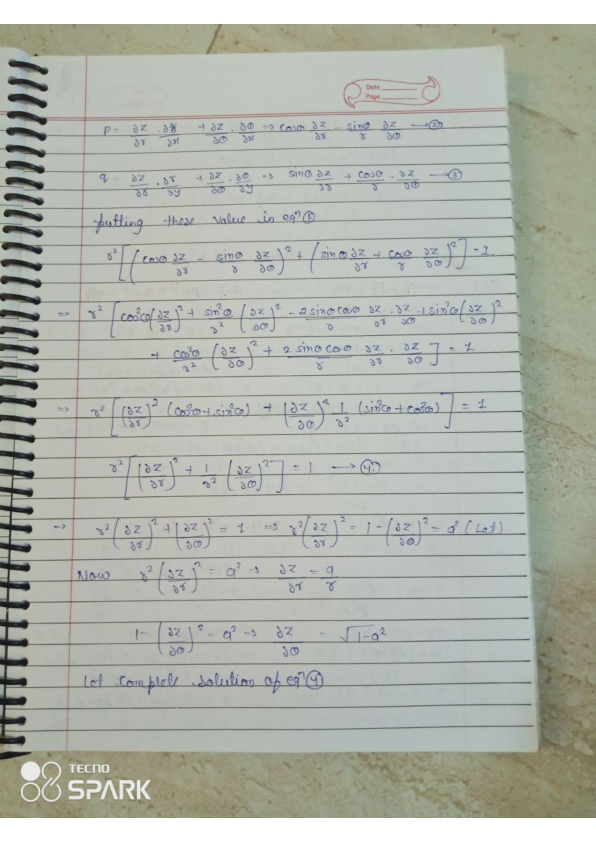 Date
Page
P = ∂z/∂r . ∂r/∂x + ∂z/∂θ . ∂θ/∂x ⇒ cosθ ∂z/∂r - sinθ/r ∂z/∂θ → ②
q = ∂z/∂r . ∂r/∂y + ∂z/∂θ . ∂θ/∂y ⇒ sinθ ∂z/∂r + cosθ/r . ∂z/∂θ → ③
putting these value in eqⁿ ①
r² [ (cosθ ∂z/∂r - sinθ/r ∂z/∂θ)² + (sinθ ∂z/∂r + cosθ/r ∂z/∂θ)² ] = 1.
⇒ r² [ cos²θ (∂z/∂r)² + sin²θ/r² (∂z/∂θ)² - 2 sinθ cosθ/r ∂z/∂r . ∂z/∂θ + sin²θ (∂z/∂θ)²
+ cos²θ/r² (∂z/∂θ)² + 2 sinθ cosθ/r ∂z/∂r . ∂z/∂θ ] = 1
⇒ r² [ (∂z/∂r)² (cos²θ + sin²θ) + (∂z/∂θ)² 1/r² (sin²θ + cos²θ) ] = 1
r² [ (∂z/∂r)² + 1/r² (∂z/∂θ)² ] = 1 → ④
→ r² (∂z/∂r)² + (∂z/∂θ)² = 1 ⇒ r² (∂z/∂r)² = 1 - (∂z/∂θ)² = a² (Let)
Now r² (∂z/∂r)² = a² ⇒ ∂z/∂r = a/r
1 - (∂z/∂θ)² = a² ⇒ ∂z/∂θ = √1-a²
Let complete solution of eqⁿ ④
TECNO
SPARK